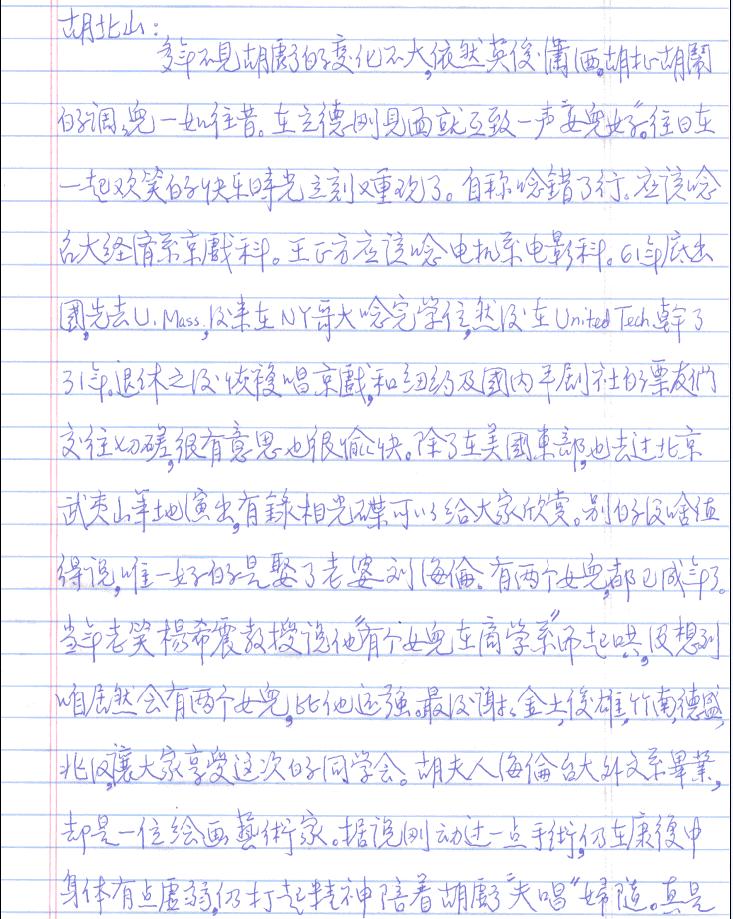 胡北山：
多年不见胡爵的变化不大,依然英俊瀟洒。胡扯胡鬧
的调兒一如往昔。在立德刚見面就互致一声"女兒好"。往日在
一起欢笑的快乐時光立刻又重现了。自称唸錯了行。应该唸
台大经濟系京戲科。王正方应该唸电机系电影科。61年底出
國,先去U. Mass,后来在NY哥大唸完学位,然后在United Tech.幹了
31年。退休之后恢復唱京戲,和纽约及國内平剧社的票友們
交往切磋,很有意思也很愉快。除了在美國東部,也去过北京
武夷山等地演出,有錄相光碟可以给大家欣赏。别的没啥值
得说,唯一好的是娶了老婆刘海倫。有两个女兒,都已成年了。
当年老笑楊希震教授说他"有个女兒在商学系"而起哄,没想到
咱居然会有两个女兒,比他还强。最后谢谢金土,俊雄,竹南,德盛,
兆汉,讓大家享受这次的同学会。胡夫人海倫台大外文系畢業,
却是一位绘画藝術家。据说刚动过一点手術,仍在康復中
身体有点虚弱,仍打起精神陪着胡爵"夫唱"婦随。真是